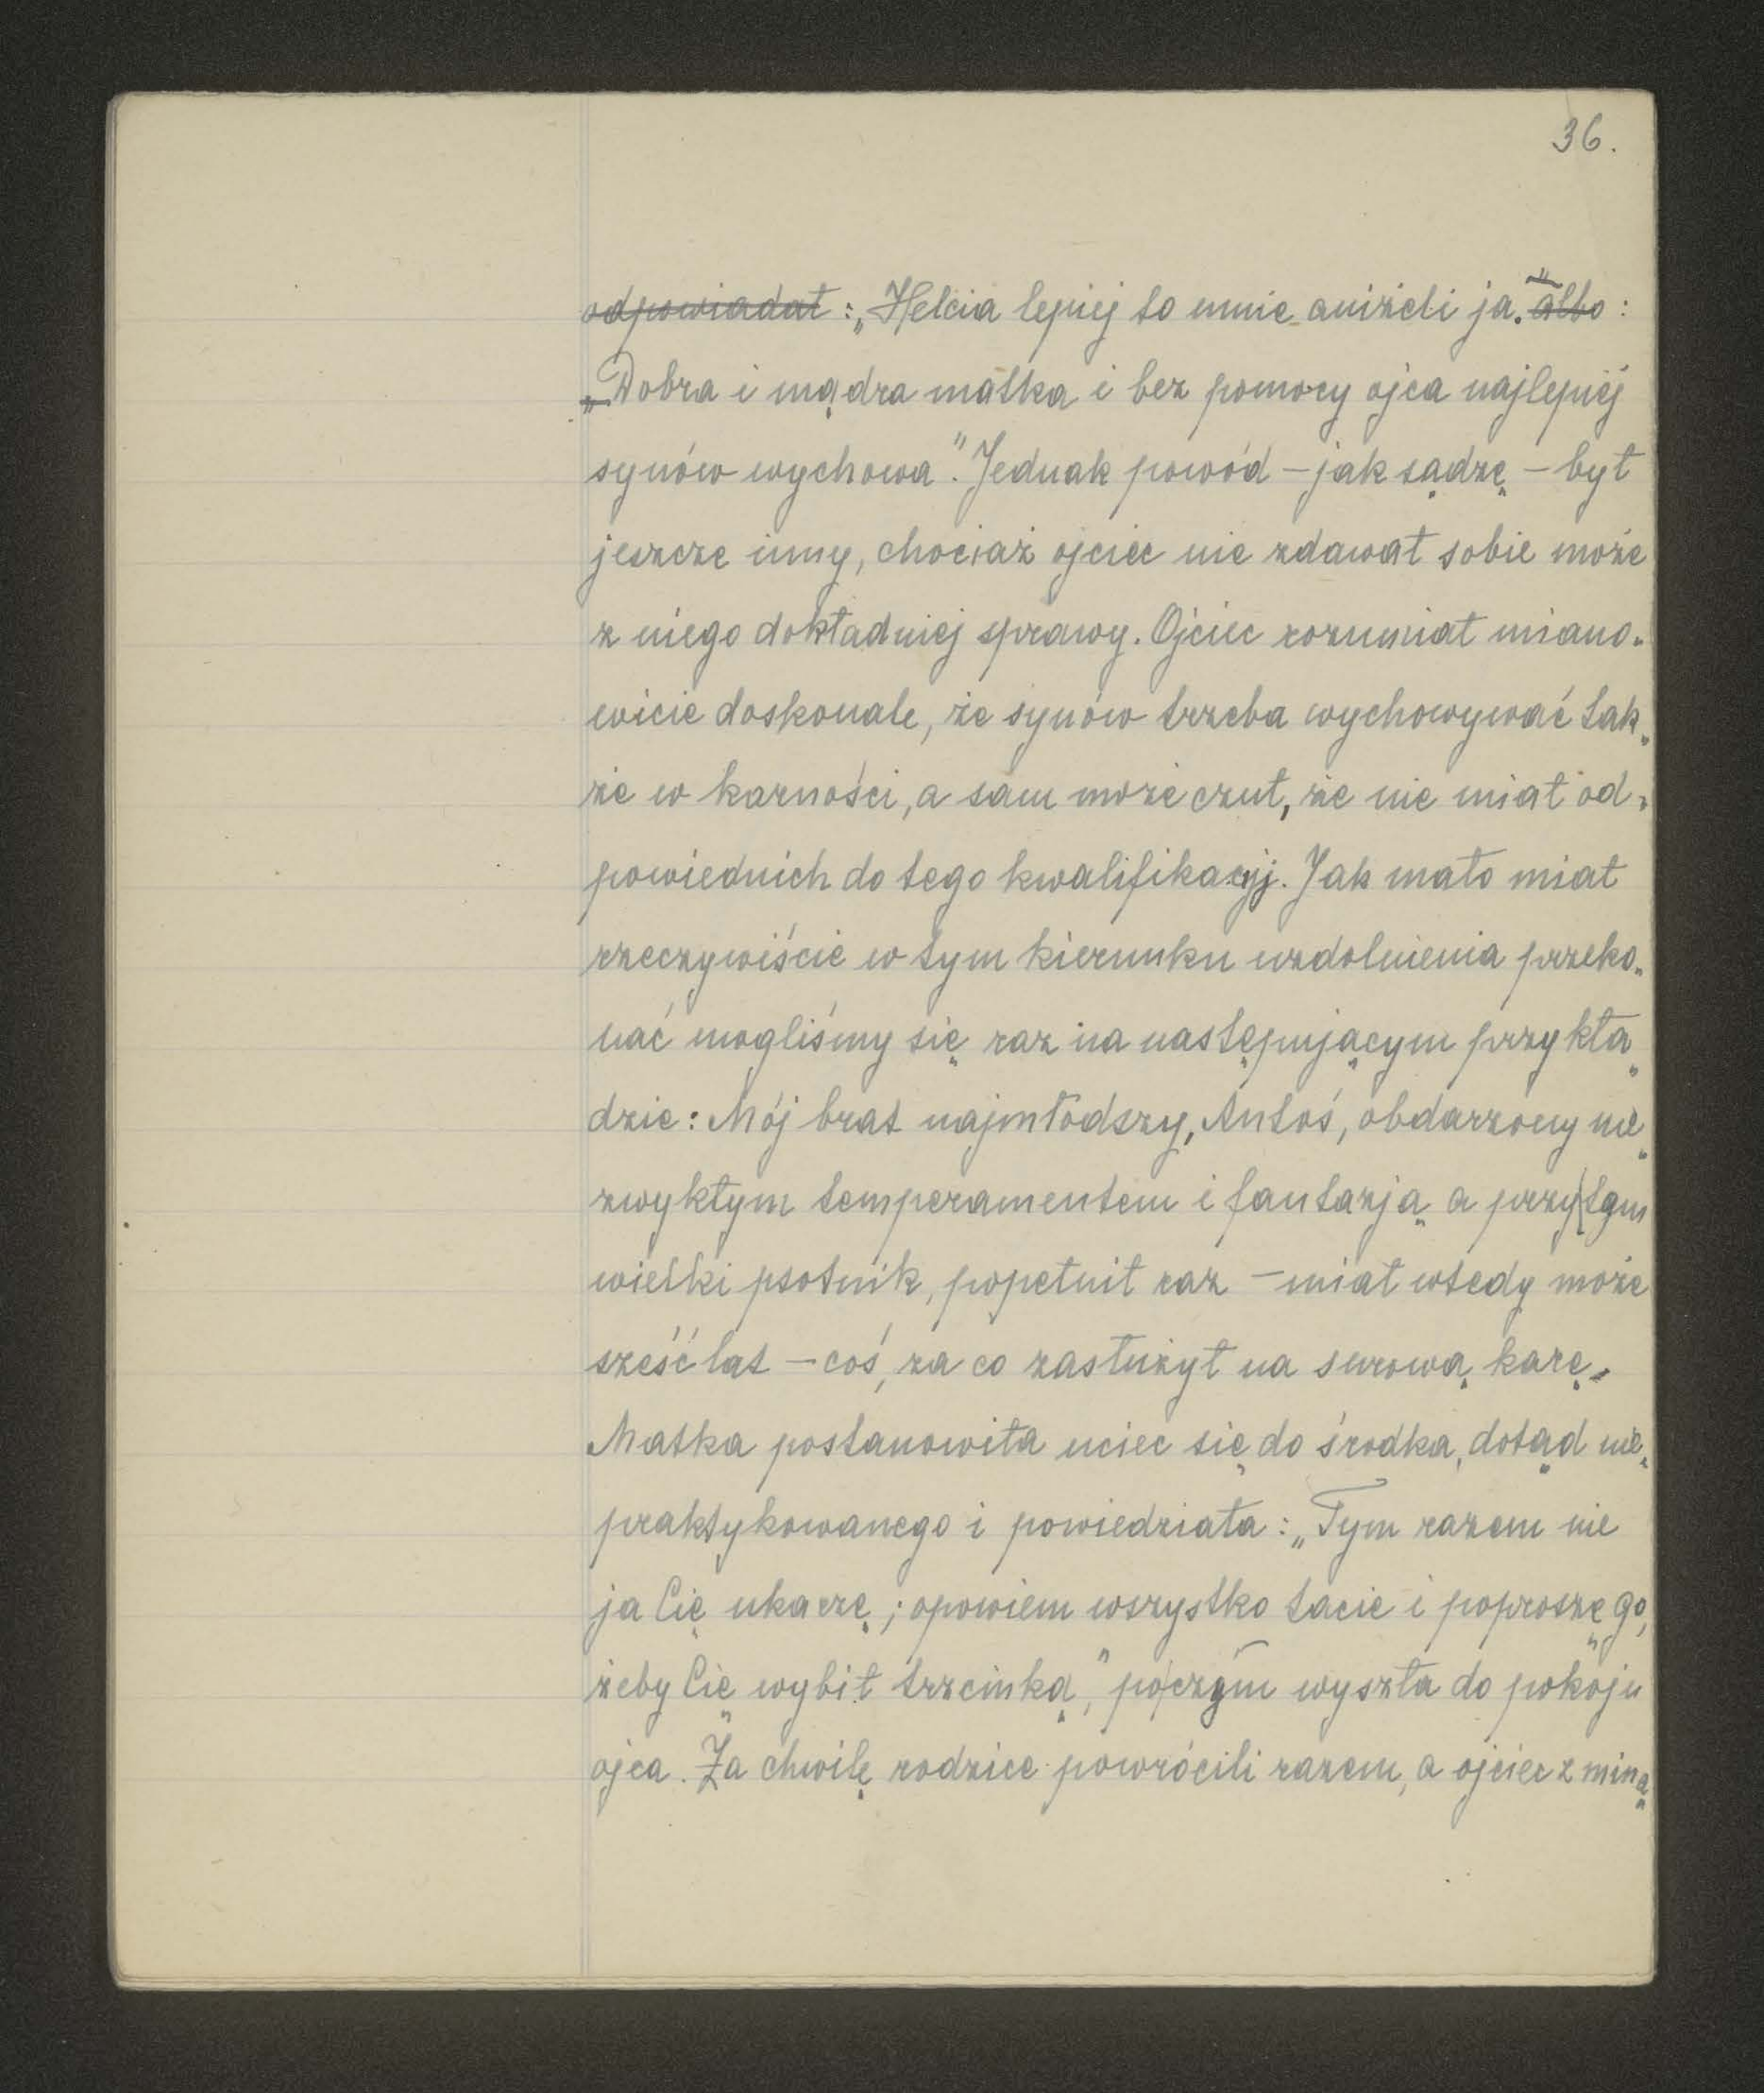 36.
odpowiadał : „Helcia lepiej to umie aniżeli ja." albo :
„Dobra i mądra matka i bez pomocy ojca najlepiej
synów wychowa". Jednak powód – jak sądzę – był
jeszcze inny, chociaż ojciec nie zdawał sobie może
z niego dokładniej sprawy. Ojciec rozumiał miano-
wicie doskonale, że synów trzeba wychowywać tak-
że w karności, a sam może czuł, że nie miał od-
powiednich do tego kwalifikacyj. Jak mało miał
rzeczywiście w tym kierunku uzdolnienia przeko-
nać mogliśmy się raz na następującym przykła-
dzie : Mój brat najmłodszy, Antoś, obdarzony nie-
zwykłym temperamentem i fantazją a przy tym
wielki psotnik, popełnił raz – miał wtedy może
sześć lat – coś, za co zasłużył na surową karę.
Matka postanowiła uciec się do środka, dotąd nie-
praktykowanego i powiedziała : „Tym razem nie
ja Cię ukarzę ; opowiem wszystko tacie i poproszę go,
żeby Cię wybił trzcinką," poczym wyszła do pokoju
ojca. Za chwilę rodzice powrócili razem, a ojciec z miną